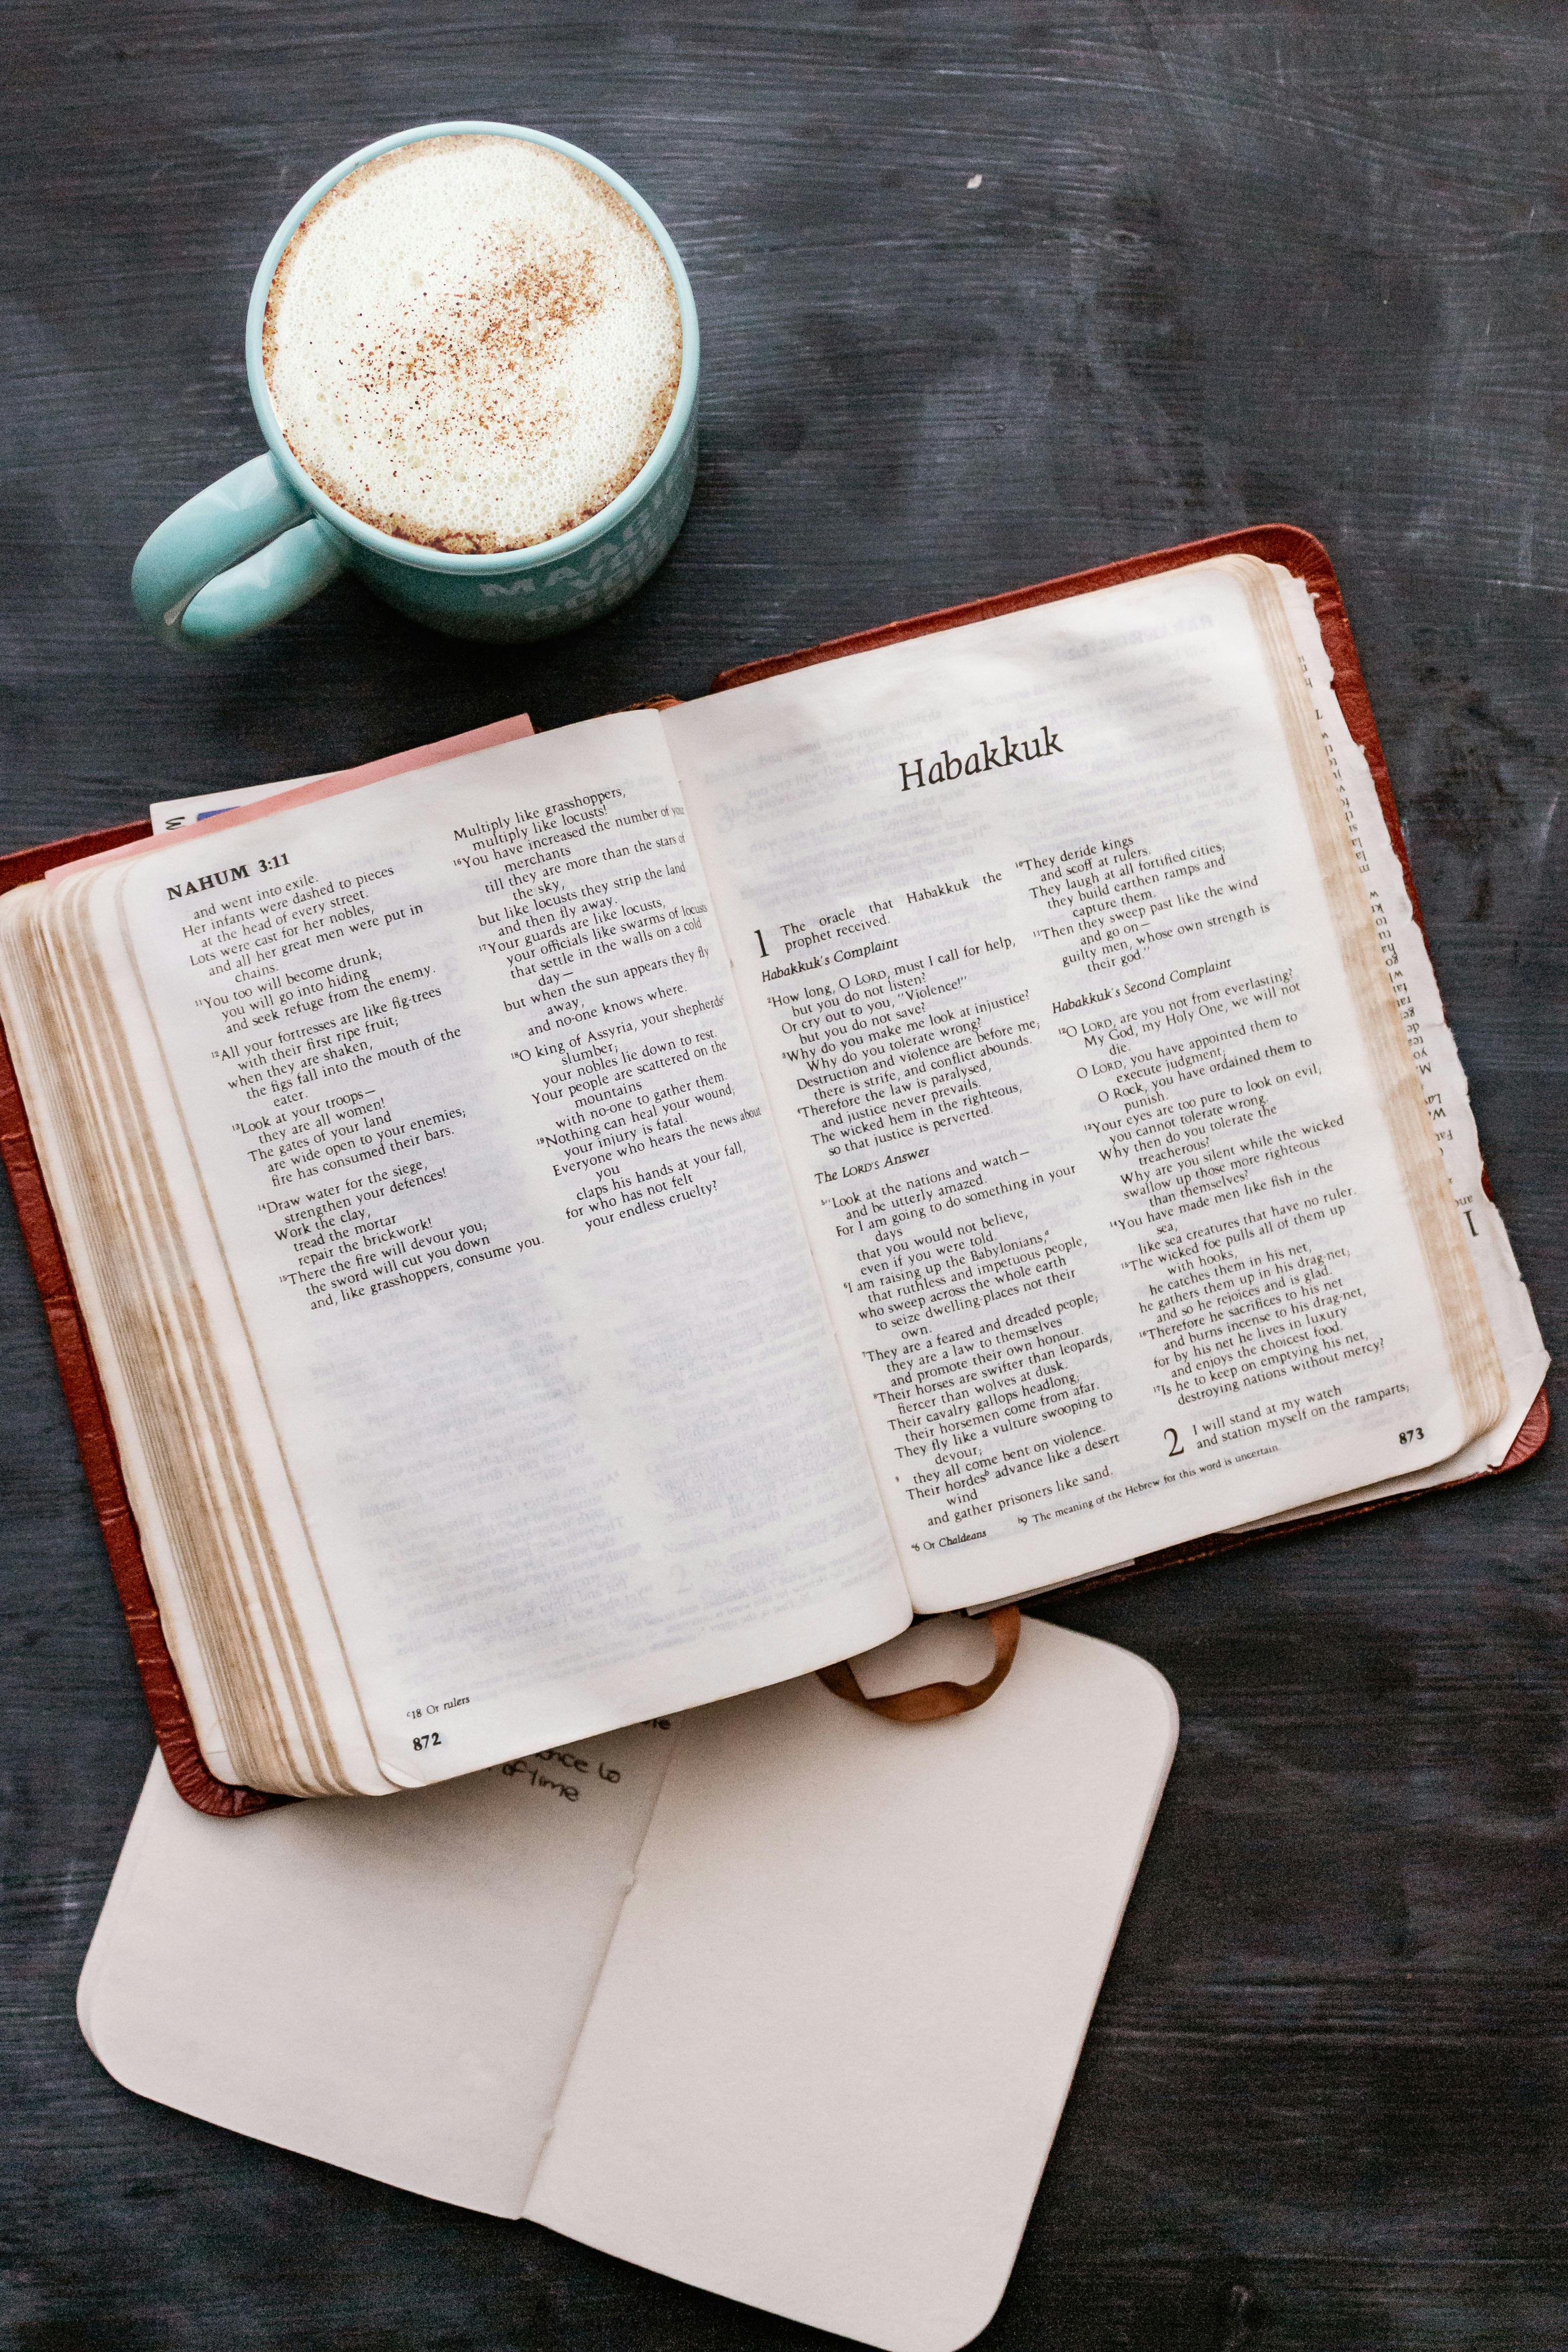 NAHUM 3:11
and went into exile.
Her infants were dashed to pieces
at the head of every street.
Lots were cast for her nobles,
and all her great men were put in
chains.
11You too will become drunk;
you will go into hiding
and seek refuge from the enemy.
12All your fortresses are like fig-trees
with their first ripe fruit;
when they are shaken,
the figs fall into the mouth of the
eater.
13Look at your troops—
they are all women!
The gates of your land
are wide open to your enemies;
fire has consumed their bars.
14Draw water for the siege,
strengthen your defences!
Work the clay,
tread the mortar
repair the brickwork!
15There the fire will devour you;
the sword will cut you down
and, like grasshoppers, consume you.
Multiply like grasshoppers,
multiply like locusts!
16You have increased the number of your
merchants
till they are more than the stars of
the sky,
but like locusts they strip the land
and then fly away.
17Your guards are like locusts,
your officials like swarms of locusts
that settle in the walls on a cold
day—
but when the sun appears they fly
away,
and no-one knows where.
18O king of Assyria, your shepherdsc
slumber;
your nobles lie down to rest.
Your people are scattered on the
mountains
with no-one to gather them.
19Nothing can heal your wound;
your injury is fatal.
Everyone who hears the news about
you
claps his hands at your fall,
for who has not felt
your endless cruelty?
c18 Or rulers
872
Habakkuk
1 The oracle that Habakkuk the
prophet received.
Habakkuk's Complaint
2How long, O LORD, must I call for help,
but you do not listen?
Or cry out to you, "Violence!"
but you do not save?
3Why do you make me look at injustice?
Why do you tolerate wrong?
Destruction and violence are before me;
there is strife, and conflict abounds.
4Therefore the law is paralysed,
and justice never prevails.
The wicked hem in the righteous,
so that justice is perverted.
The LORD's Answer
5"Look at the nations and watch—
and be utterly amazed.
For I am going to do something in your
days
that you would not believe,
even if you were told.
6I am raising up the Babylonians,a
that ruthless and impetuous people,
who sweep across the whole earth
to seize dwelling-places not their
own.
7They are a feared and dreaded people;
they are a law to themselves
and promote their own honour.
8Their horses are swifter than leopards,
fiercer than wolves at dusk.
Their cavalry gallops headlong;
their horsemen come from afar.
They fly like a vulture swooping to
devour;
9 they all come bent on violence.
Their hordesb advance like a desert
wind
and gather prisoners like sand.
10They deride kings
and scoff at rulers.
They laugh at all fortified cities;
they build earthen ramps and
capture them.
11Then they sweep past like the wind
and go on—
guilty men, whose own strength is
their god."
Habakkuk's Second Complaint
12O LORD, are you not from everlasting?
My God, my Holy One, we will not
die.
O LORD, you have appointed them to
execute judgment;
O Rock, you have ordained them to
punish.
13Your eyes are too pure to look on evil;
you cannot tolerate wrong.
Why then do you tolerate the
treacherous?
Why are you silent while the wicked
swallow up those more righteous
than themselves?
14You have made men like fish in the
sea,
like sea creatures that have no ruler.
15The wicked foe pulls all of them up
with hooks,
he catches them in his net,
he gathers them up in his drag-net;
and so he rejoices and is glad.
16Therefore he sacrifices to his net
and burns incense to his drag-net,
for by his net he lives in luxury
and enjoys the choicest food.
17Is he to keep on emptying his net,
destroying nations without mercy?
2 I will stand at my watch
and station myself on the ramparts;
a6 Or Chaldeans b9 The meaning of the Hebrew for this word is uncertain.
873
to
of time